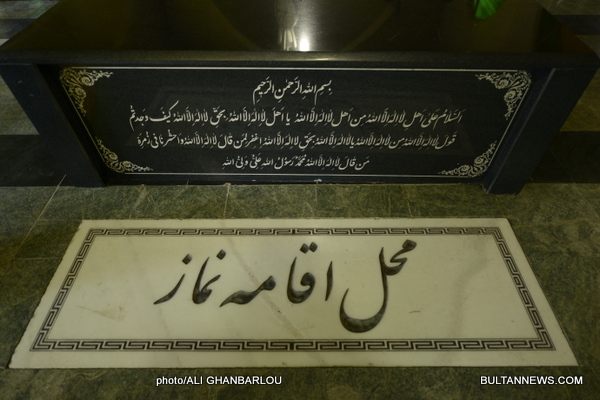 بِسْمِ اللهِ الرَّحْمٰنِ الرَّحِيمِ
اَلسَّلَامُ عَلَى اَهْلِ لَا اِلٰهَ اِلَّا اللهُ مِنْ اَهْلِ لَا اِلٰهَ اِلَّا اللهُ يَا اَهْلَ لَا اِلٰهَ اِلَّا اللهُ بِحَقِّ لَا اِلٰهَ اِلَّا اللهُ كَيْفَ وَجَدْتُمْ
قَوْلَ لَا اِلٰهَ اِلَّا اللهُ مِنْ لَا اِلٰهَ اِلَّا اللهُ يَا لَا اِلٰهَ اِلَّا اللهُ بِحَقِّ لَا اِلٰهَ اِلَّا اللهُ اِغْفِرْ لِمَنْ قَالَ لَا اِلٰهَ اِلَّا اللهُ وَاحْشُرْنَا فِي زُمْرَةِ
مَنْ قَالَ لَا اِلٰهَ اِلَّا اللهُ مُحَمَّدٌ رَسُولُ اللهِ عَلِيٌّ وَلِيُّ اللهِ
محل اقامه نماز
photo/ALI GHANBARLOU
BULTANNEWS.COM